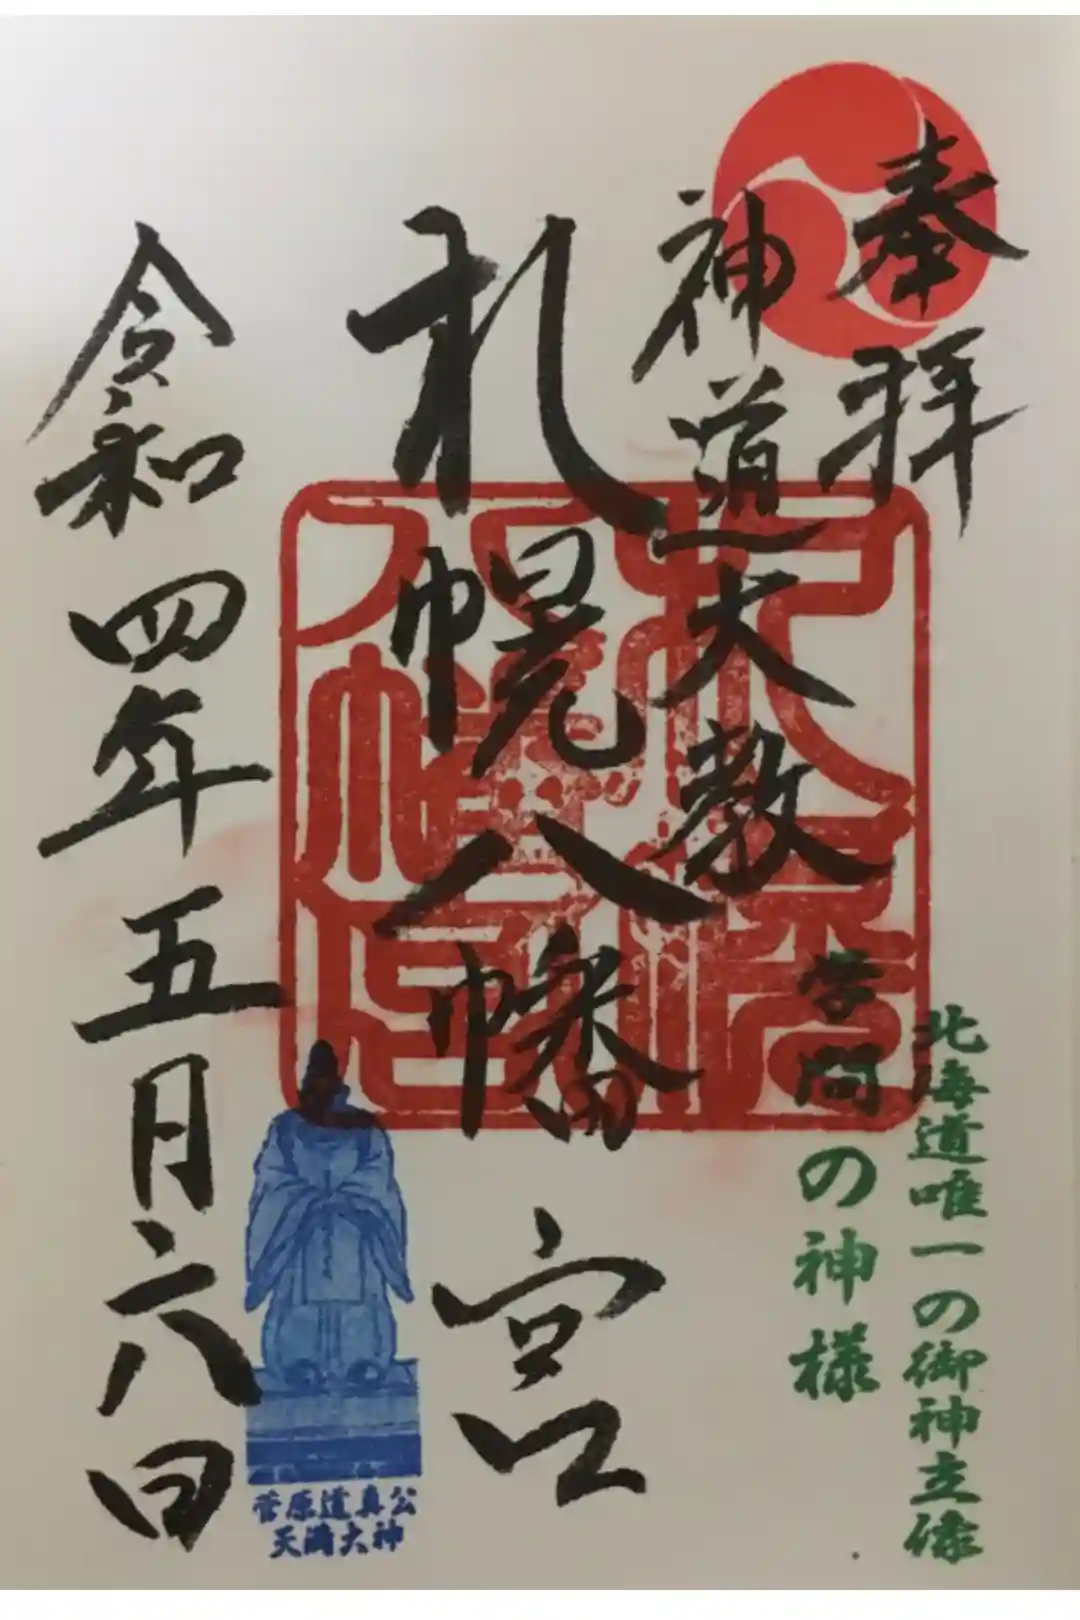 奉拝
神道大教
北海道唯一の御神立像
学問の神様
札幌八幡宮
札幌八幡宮
菅原道真公
天満大神
令和四年五月六日